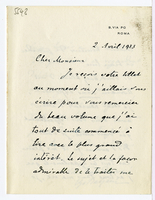 5248
8. VIA PO
ROMA
2 Avril 1931
Cher Monsieur
Je reçois votre billet
au moment où j'allais vous
écrire pour vous remercier
du beau volume que j'ai
tout de suite commencé à
lire avec le plus grand
intérêt. Le sujet et la façon
admirable de le traiter me